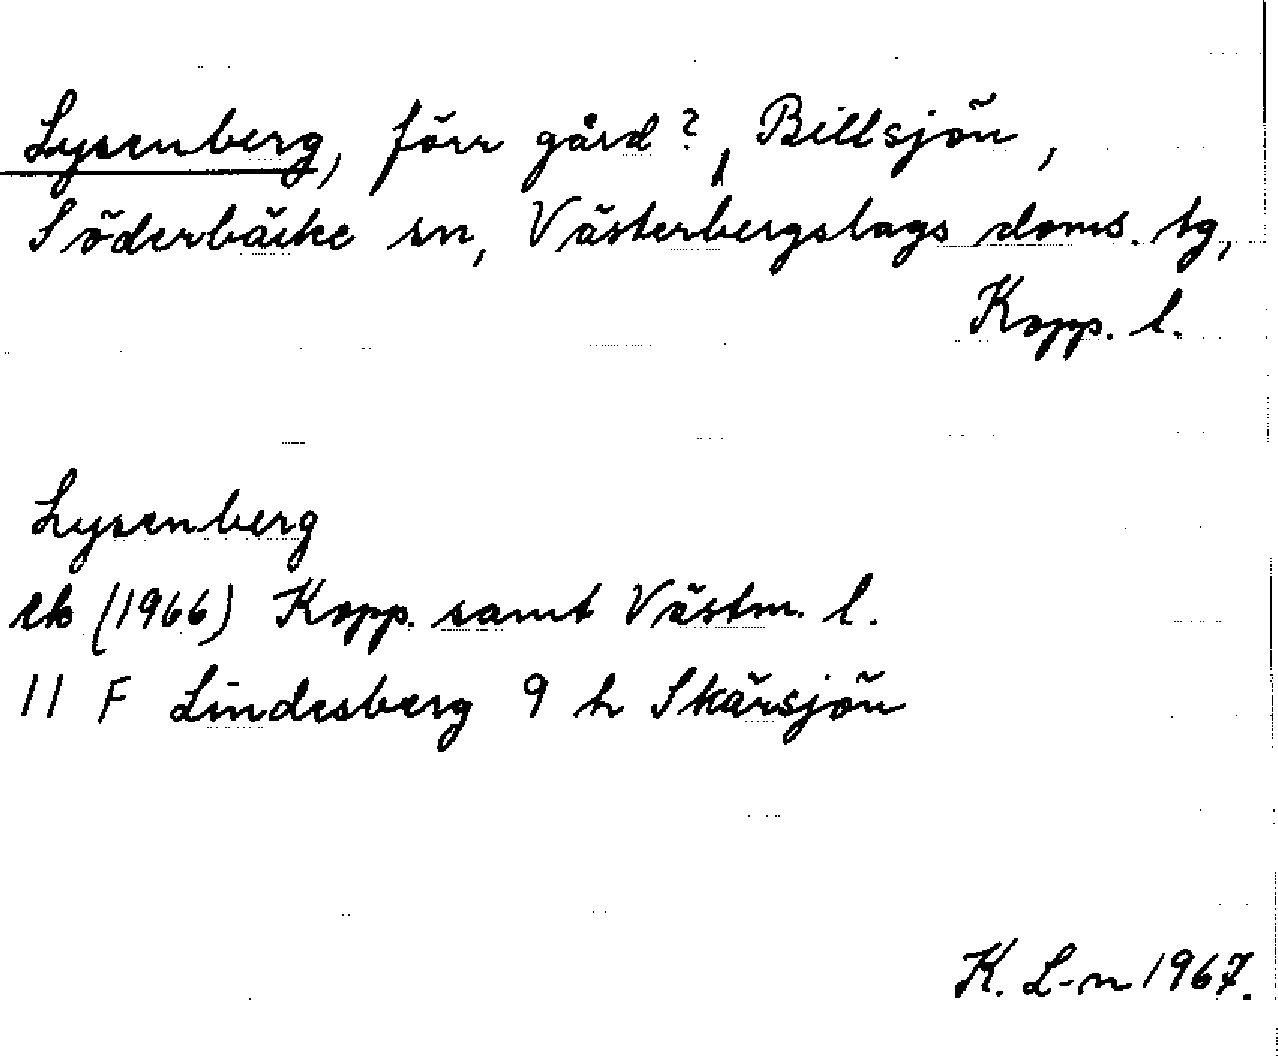 Lysenberg, förr gård?, Billsjön,
Söderbärke sn, Västerbergslags doms. tg,
Kopp. l.
Lysenberg
ek (1966) Kopp. samt Västm. l.
11 F Lindesberg 9 h Skärsjön
K. L-n 1967.